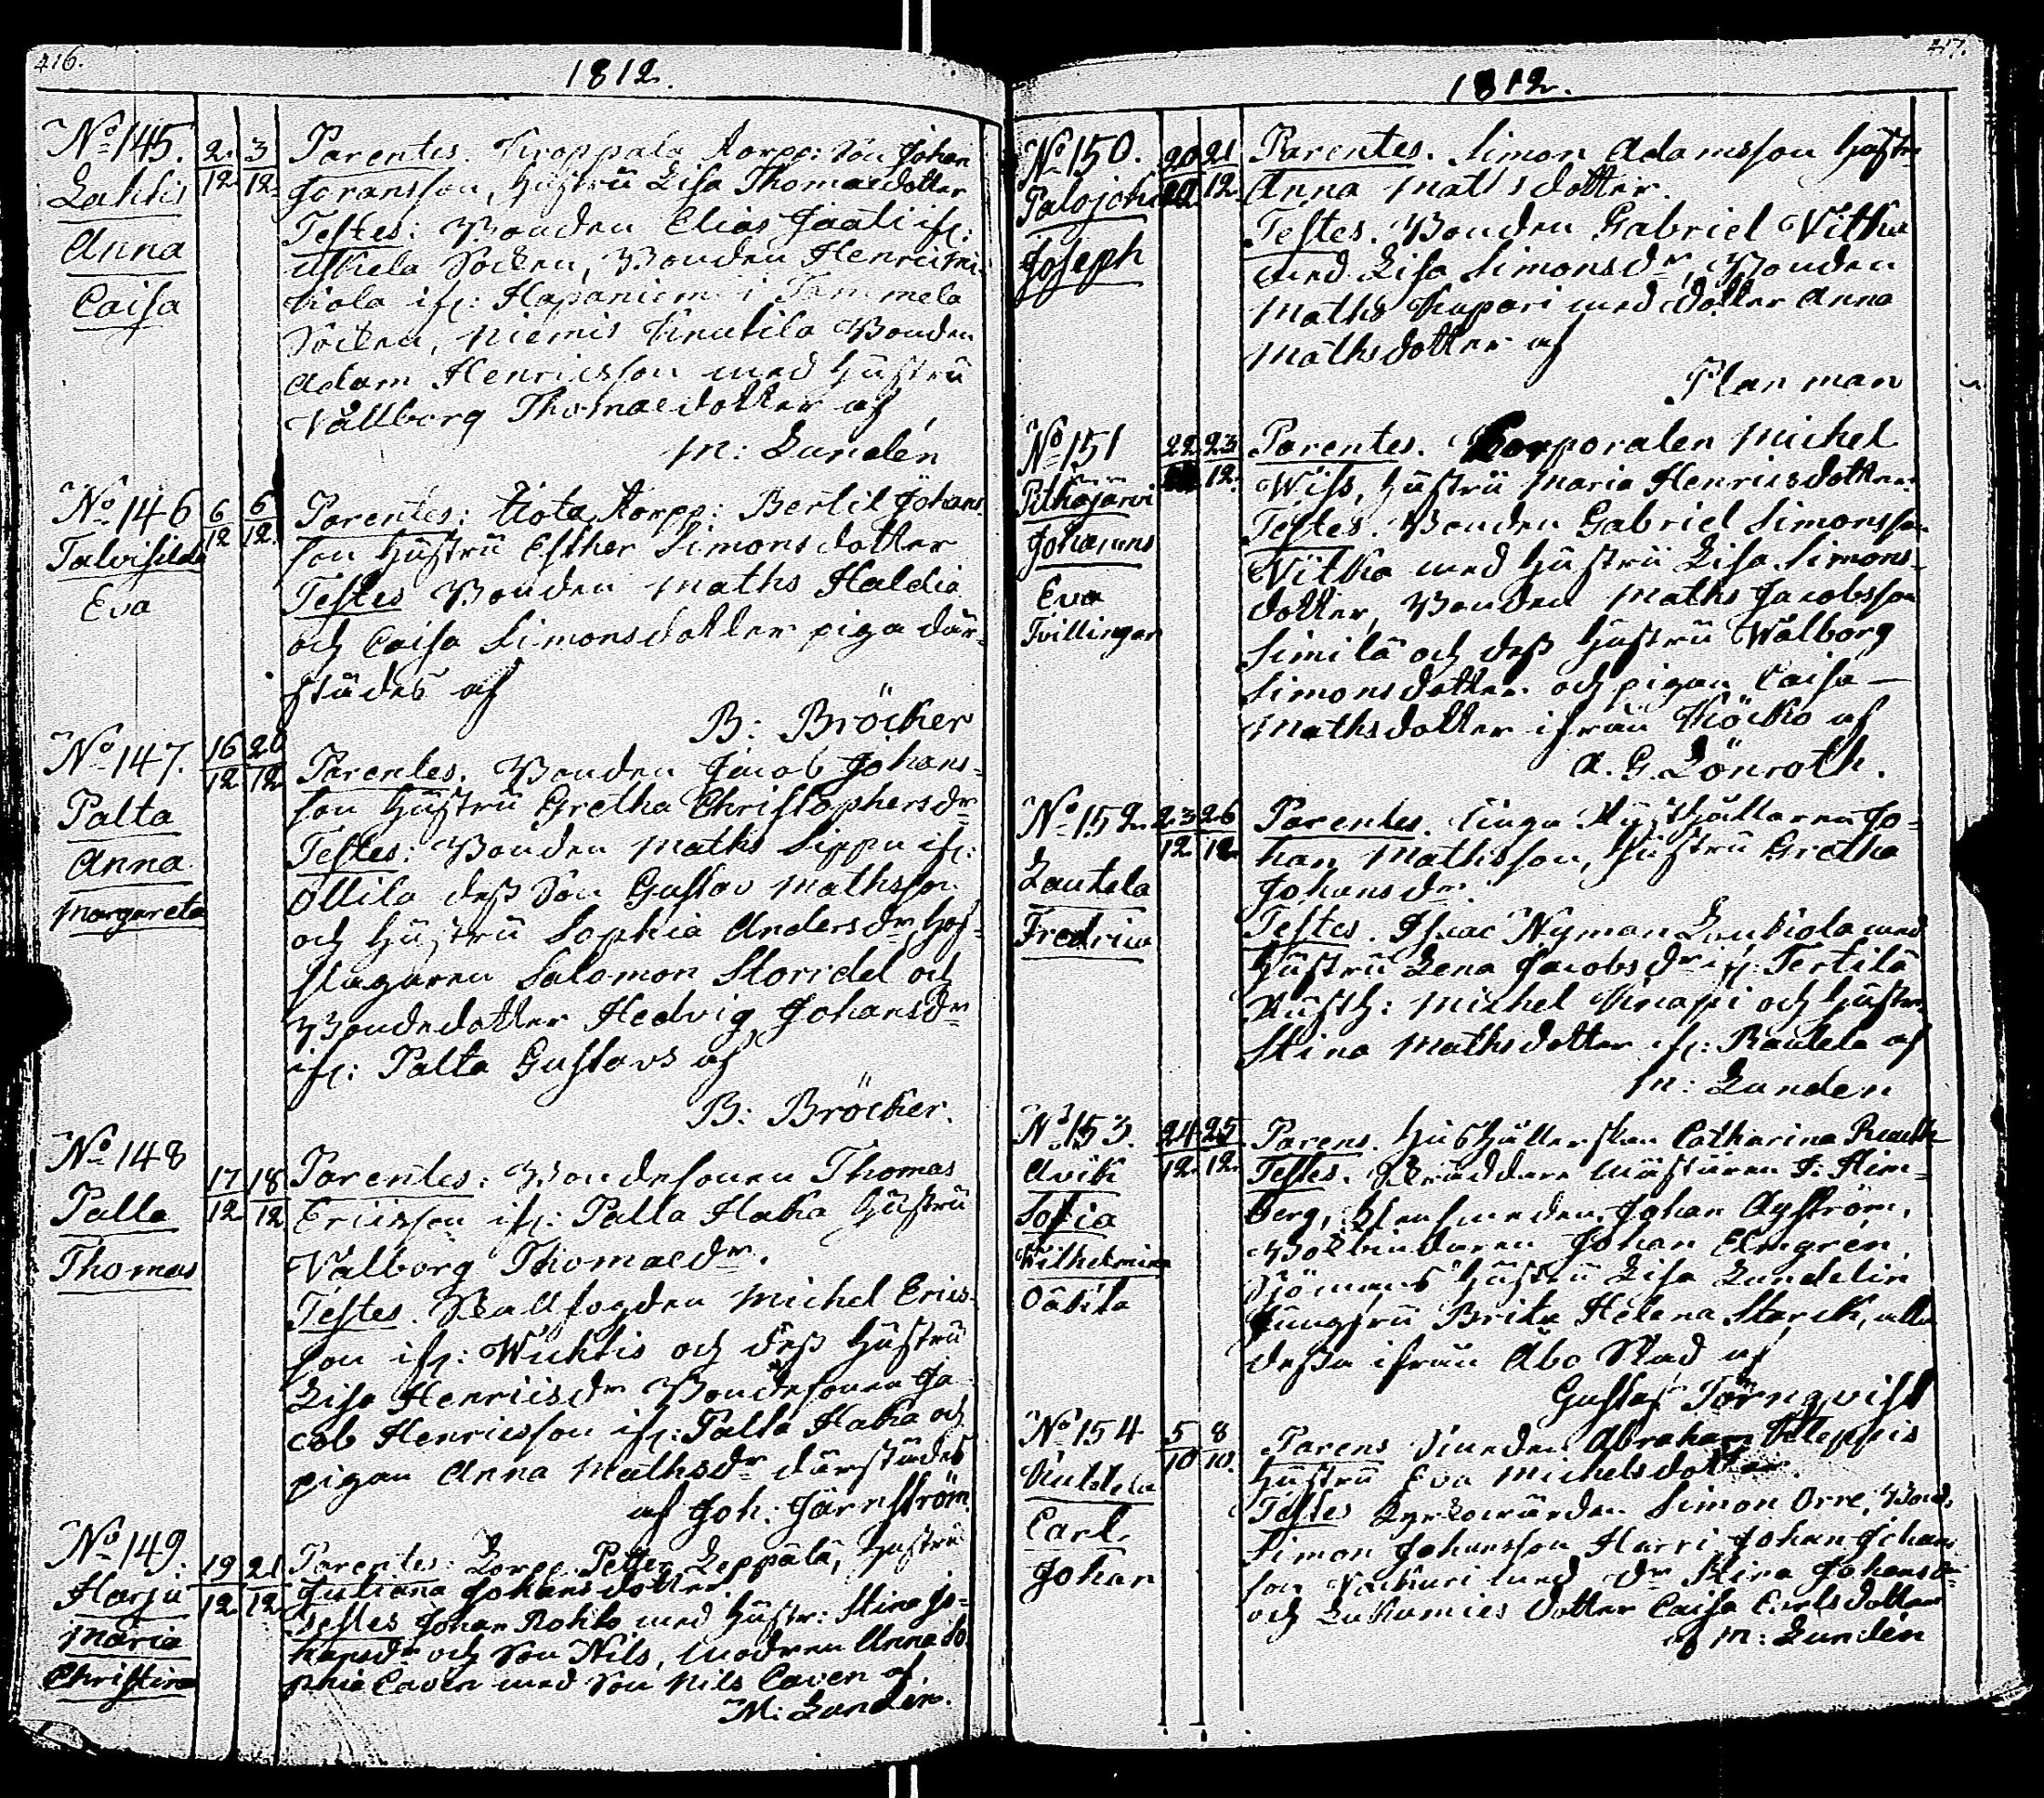 416.
1812.
No 145.
Lahhis
Anna
Caisa
2. 3
12 12
Parentes. Kroppala torpp: Son Johan
Göransson, hustru Lisa Thomaedotter
Testes: Bonden Elias Jaati ifr:
Uskela Socken, Bonden Henric
kiola ifr: Haponiemi i Tammela
Socken, Niemis Knutila Bonden
Adam Henricsson med hustru
Vallborg Thomaedotter af
M: Lundén
No 146
Talvisilda
Eva
6 6
12 12
Parentes: torpp: Bertil Johans-
son hustru Esther Simonsdotter
Testes Bonden Maths Haldia
och Caisa Simonsdotter piga där-
städes af
B: Bröcker
No 147.
Palta
Anna
Margareta
16 20
12 12
Parentes. Bonden Jacob Johans-
son hustru Gretha Christophersdr
Testes: Bonden Maths Sippu ifr:
Ollila dess Son Gustav Mathsson
och hustru Sophia Andersdr, Hof-
slagaren Salomon Storridel och
Bondedotter Hedvig Johansdr
ifr: Palta Gustavs af
B: Bröcker.
No 148
Palla
Thomas
17 18
12 12
Parentes: Bondesonen Thomas
Ericsson ifr: Palla Haka hustru
Valborg Thomaedr.
Testes. Stallfogden Michel Erics-
son ifr: Wichtis och dess hustru
Lisa Henricsdr Bondesonen Ja-
cob Henricsson ifr: Palla Haka och
pigan Anna Mathsdr därstädes
af Joh: Järnström
No 149.
Harju
Maria
Christina
19 21
12 12
Parentes: Torpp Petter Leppälä, hustru
Juliana Johansdotter
Testes Johan Rohto med hustr: Stina Jo-
hansdr och Son Nils, Modren Anna So-
phia Caven med Son Nils Caven af
M: Lundén.
417.
1812.
No 150.
Palojoki
Joseph
20 21
12.
Parentes. Simon Adamsson hustru
Anna Mathsdotter.
Testes. Bonden Gabriel Vitka
med Lisa Simonsdr, Bonden
Maths Kupari med dotter Anna
Mathsdotter af
Planman
No 151
Pitkäjärvi
Johannes
Eva
Tvillingar
22 23
12.
Parentes. Korporalen Michel
Wiss, hustru Maria Henricsdotter
Testes. Bonden Gabriel Simonsson
Vitka med hustru Lisa Simons-
dotter, Bonden Maths Jacobsson
Similä och dess hustru Wålborg
Simonsdotter och pigan Caisa
Mathsdotter ifrån Köcko af
A. G. Lönroth.
No 152
Lautela
Fredrica
23 26
12 12
Parentes. Unga Rusthållaren Jo-
han Mathsson, hustru Gretha
Johansdr.
Testes. Isaac Nyman Loukiola med
hustru Lena Jacobsdr ifr: Tertilä
Rusth: Michel Knapi och hustru
Stina Mathsdotter ifr: Rautela af
M: Lunden
No 153.
Avik
Sofia
Wilhelmina
Oäkta
24 25
12. 12.
Parens. Hushållerskan Catharina
Testes. Skräddare Mästaren J. Him-
berg, Johan Agström,
Bokbindaren Johan Elmgren,
Sjömans hustru Lisa Lundelin
Jungfru Brita Helena Starck, alla
dessa ifrån Åbo Stad af
Gustaf Törnqvist
No 154
Carl
Johan
5 8
10 10.
Parens Smeden Abraham
hustru Eva Michelsdotter.
Testes Kyrkovärden Simon Orre, Bond.
Simon Johansson Harri Johan Johans-
son med dr Stina Johansdr
och Lukumies dotter Caisa Carlsdotter
af M: Lundén